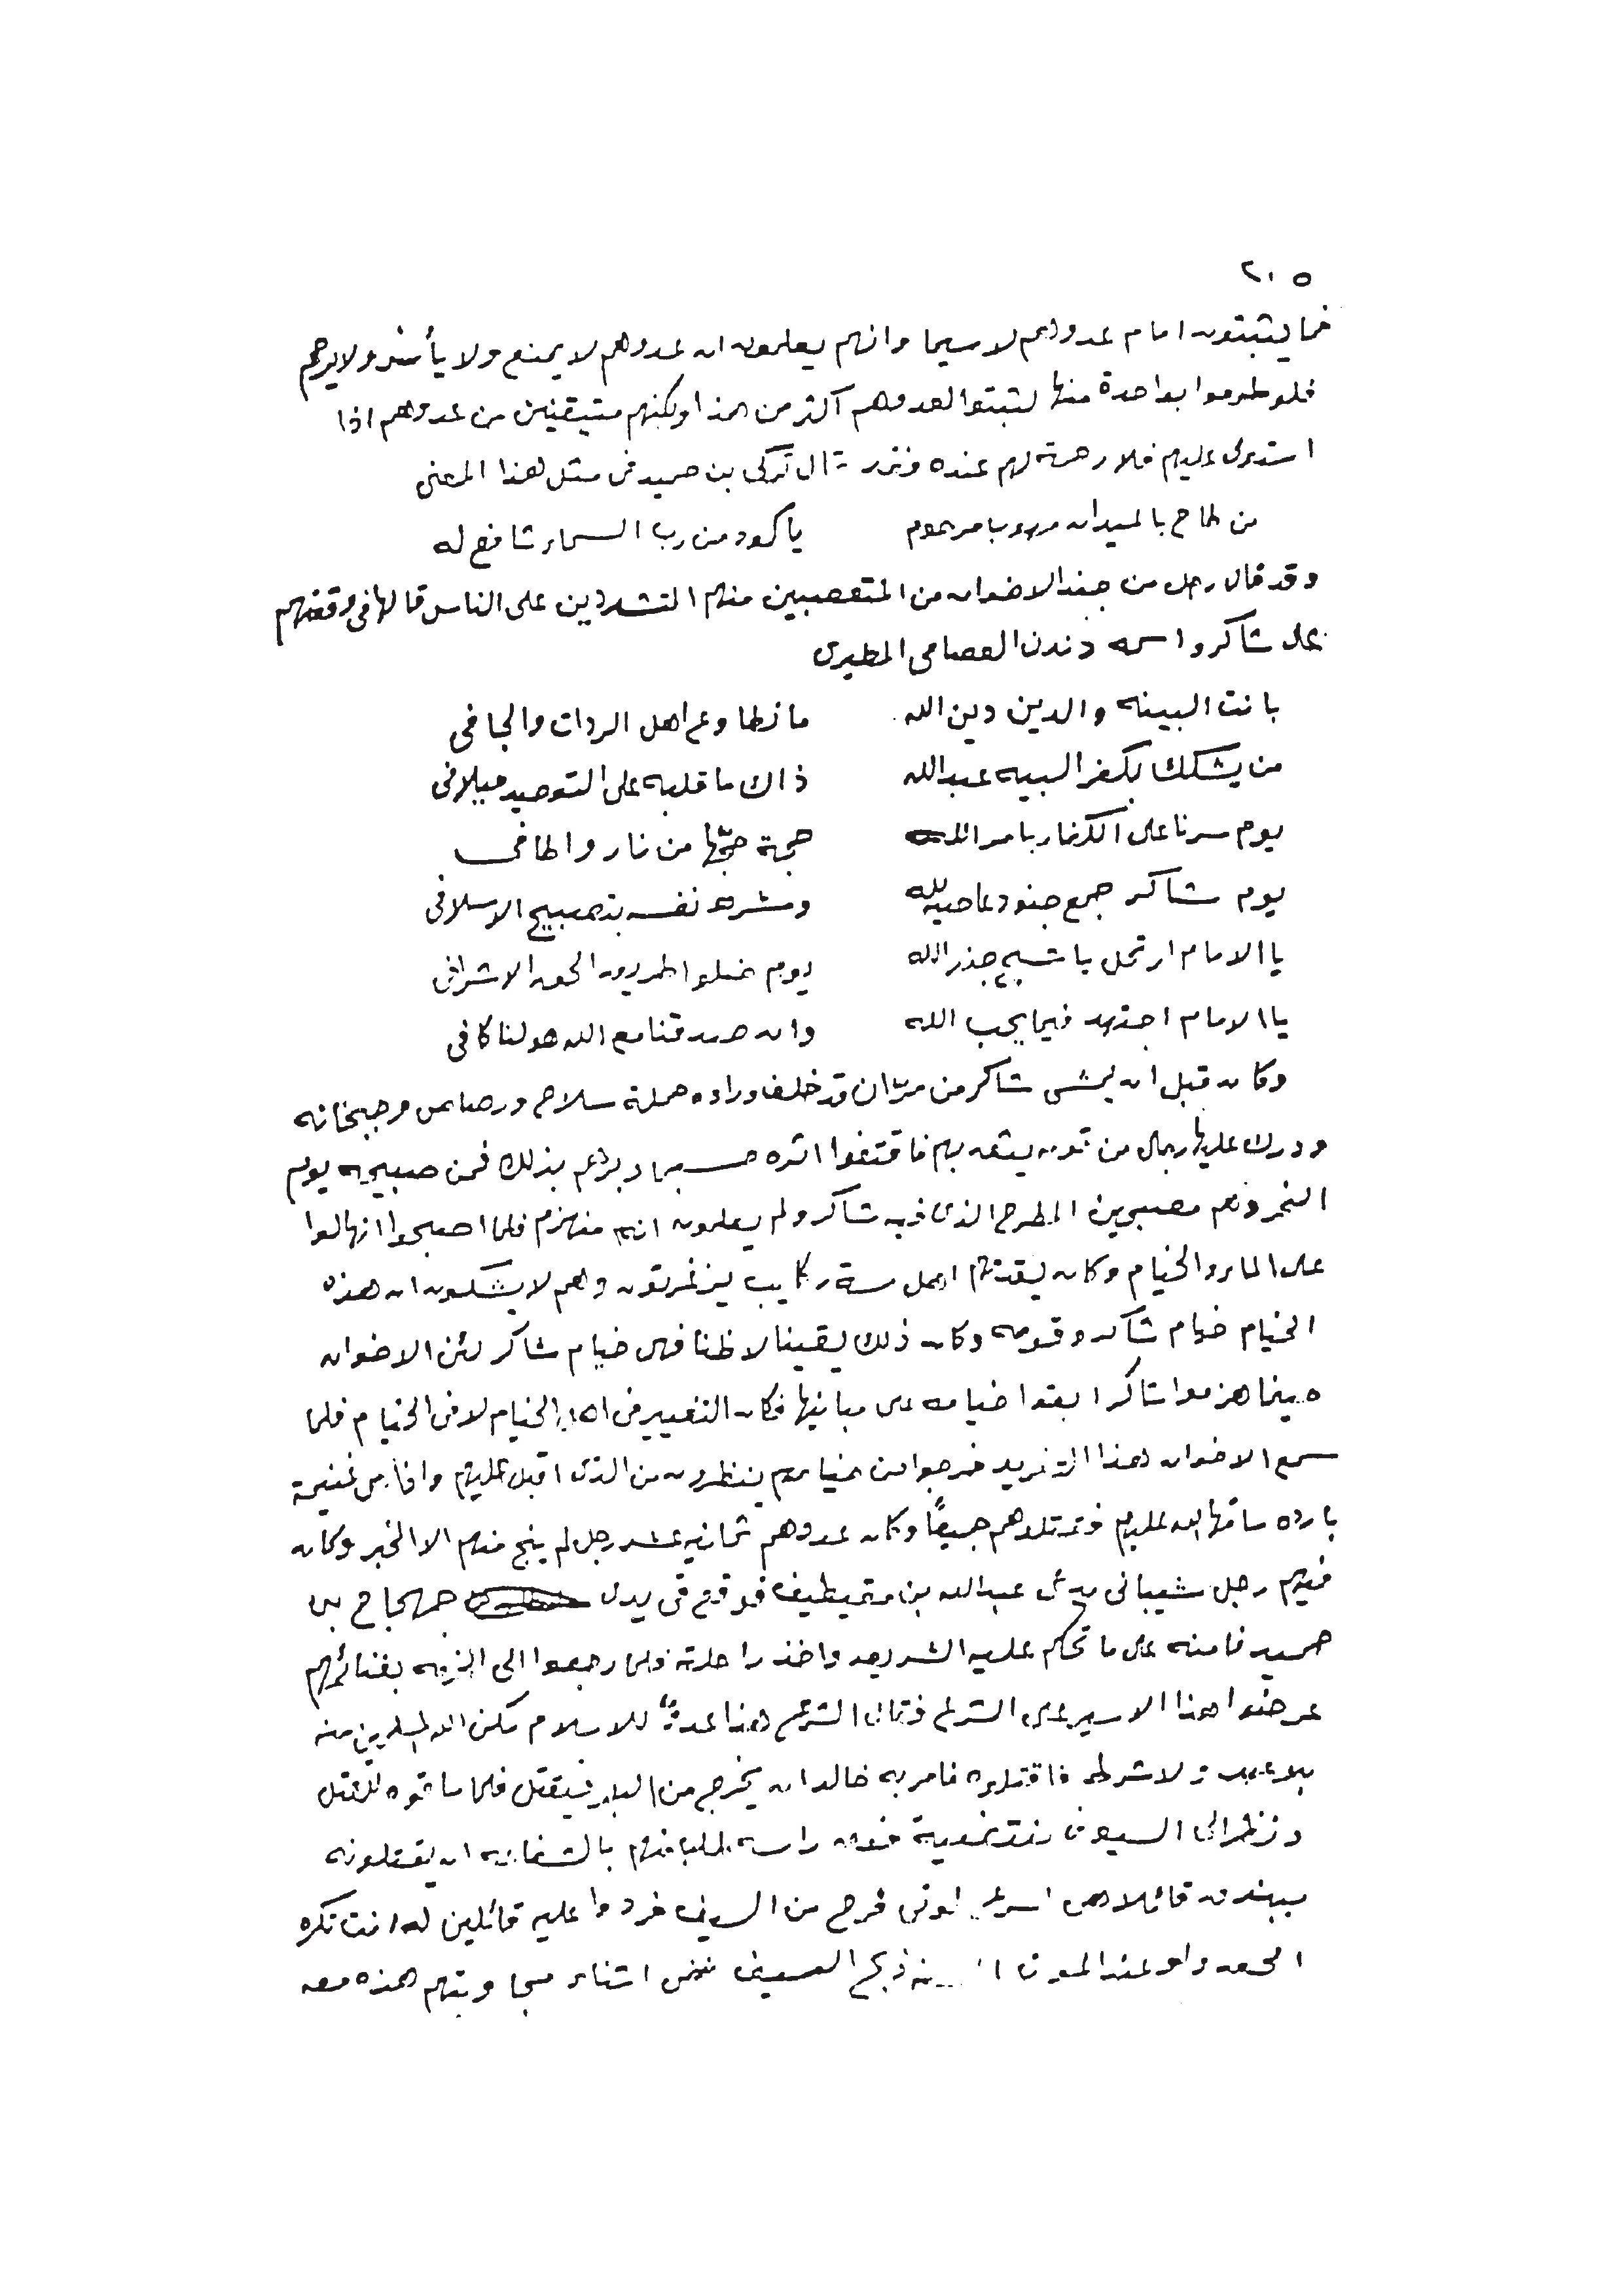 ٢٠٥
فما يثبتون امام عدوهم لاسيما وانهم يعلمون ان عدوهم لا يمنع ولا يأسر ولا يرحم
فلو طمعوا بواحدة منها لثبتوا لعدوهم اكثر من هذا ولكنهم متيقنين من عدوهم اذا
استولى عليهم فلا رحمة لهم عنده وقد قال تركي بن حميد في مثل هذا المعنى
من طاح بالميدان مهوب مرحوم ياكود من رب السماء شافع له
وقد قال رجل من جند الاخوان من المتعصبين منهم المتشددين على الناس قالها في وقعتهم
على شاكر واسمه دندن العصامي المطيري
بانت البينه والدين دين الله ما نطاوع اهل الردات والجافي
من يشكك بكفر السيد عبدالله ذاك ما قلبه على التوحيد ميلافي
يوم سرنا على الكفار بامر الله حجة حجّها من نار والطافي
يوم شاكر جمع جنود عاصية لله ومشره نفسه بتصبيح الاسلافي
يا الامام ارتحل يا شيخ جند الله يوم خلوا طريق الحق الاشرافي
يا الامام اجتهد فيما يحب الله وان صدقنا مع الله هو لنا كافي
وكان قبل ان يمشي شاكر من مران قد خلف وراءه حملة سلاح ورصاص وجبخانه
ودرك عليها رجال من قومه يثق بهم فاقتفوا اثره حسبما دبرهم بذلك فمن صبيحة يوم
النحر وهم مصبحين المطرح الذي فيه شاكر ولم يعلمون انه منهزم فلما اصبحوا انهالوا
على الماء والخيام وكان يقدمهم اهل ستة ركايب يزغرتون وهم لا يشكون ان هذه
الخيام خيام شاكر وقومه وكان ذلك يقينا لا ظنا فهي خيام شاكر لكن الاخوان
حينما هزموا شاكرا بقوا خيامه على مبانيها فكان التغيير في اهل الخيام لا في الخيام فلما
سمع الاخوان هذا التغريد خرجوا من خيامهم ينظرون من الذي اقبل عليهم واذا هي غنيمة
بارده ساقها الله عليهم فقتلوهم جميعًا وكان عددهم ثمانية عشر رجل لم ينج منهم الا الخبر وكان
فيهم رجل شيباني يدعى عبدالله بن فوقع في يدي جهجاح بن
حميد فامنه على ما تحكم عليه الشريعه واخذ راحلته ولما رجعوا الى الخرمه بغنائمهم
عرضوا هذا الاسير على الشرع فقال الشرع هذا عدوٌ للاسلام مكن الله المسلمين منه
بلا عهد ولا شرط فاقتلوه فامر به خالد ان يخرج من البلد فيقتل فلما ساقوه للقتل
ونظر الى السيوف فوق راسه طلب منهم بالشفاعه ان يقتلونه
ببندق قائلا هي اسرع لموتي فرج من السيف فردوا عليه قائلين له انت تكره
الحق ولو عند الموت ذبح السيف ففي اثناء مجاوبتهم هذه معه